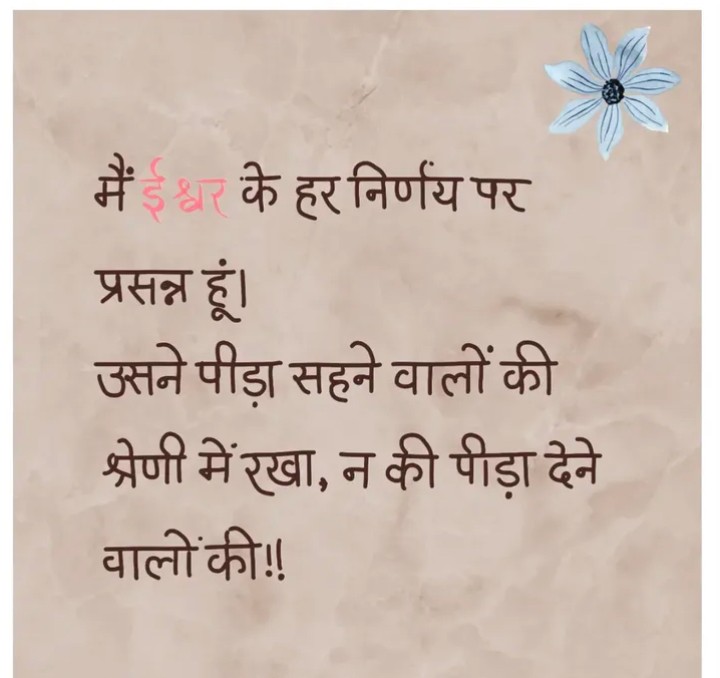 मैं ईश्वर के हर निर्णय पर
प्रसन्न हूं।
उसने पीड़ा सहने वालों की
श्रेणी में रखा, न की पीड़ा देने
वालों की!!